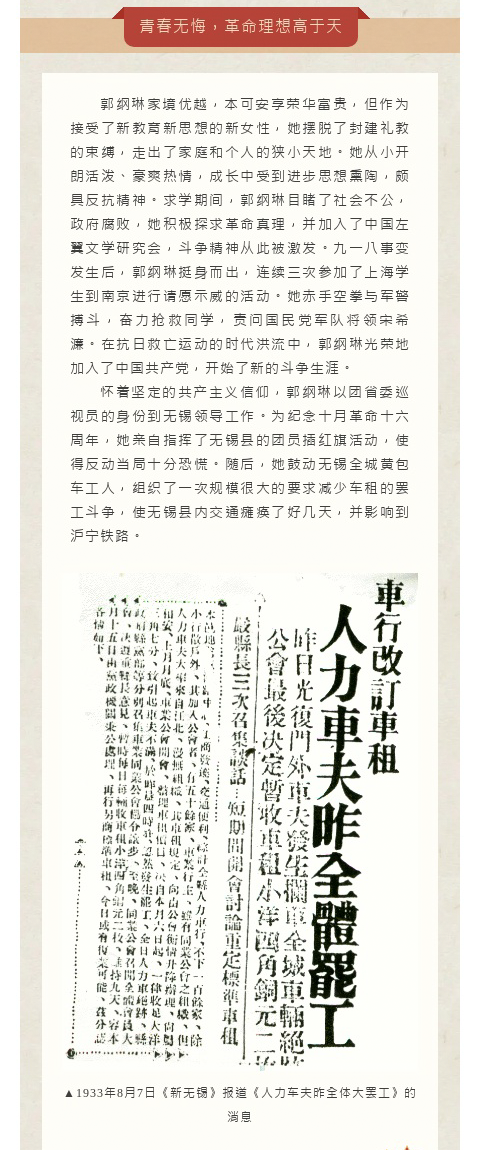 青春无悔，革命理想高于天
郭纲琳家境优越，本可安享荣华富贵，但作为
接受了新教育新思想的新女性，她摆脱了封建礼教
的束缚，走出了家庭和个人的狭小天地。她从小开
朗活泼、豪爽热情，成长中受到进步思想熏陶，颇
具反抗精神。求学期间，郭纲琳目睹了社会不公，
政府腐败，她积极探求革命真理，并加入了中国左
翼文学研究会，斗争精神从此被激发。九一八事变
发生后，郭纲琳挺身而出，连续三次参加了上海学
生到南京进行请愿示威的活动。她赤手空拳与军警
搏斗，奋力抢救同学，责问国民党军队将领宋希
濂。在抗日救亡运动的时代洪流中，郭纲琳光荣地
加入了中国共产党，开始了新的斗争生涯。
怀着坚定的共产主义信仰，郭纲琳以团省委巡
视员的身份到无锡领导工作。为纪念十月革命十六
周年，她亲自指挥了无锡县的团员插红旗活动，使
得反动当局十分恐慌。随后，她鼓动无锡全城黄包
车工人，组织了一次规模很大的要求减少车租的罢
工斗争，使无锡县内交通瘫痪了好几天，并影响到
沪宁铁路。
車行改訂車租
人力車夫昨全體罷工
昨日光復門外車夫發生攔車全城車輛絕
公會最後決定暫收車租小洋四角銅元二
嚴縣長三次召集談話…短期間開會討論重定標準車租
▲1933年8月7日《新无锡》报道《人力车夫昨全体大罢工》的
消息